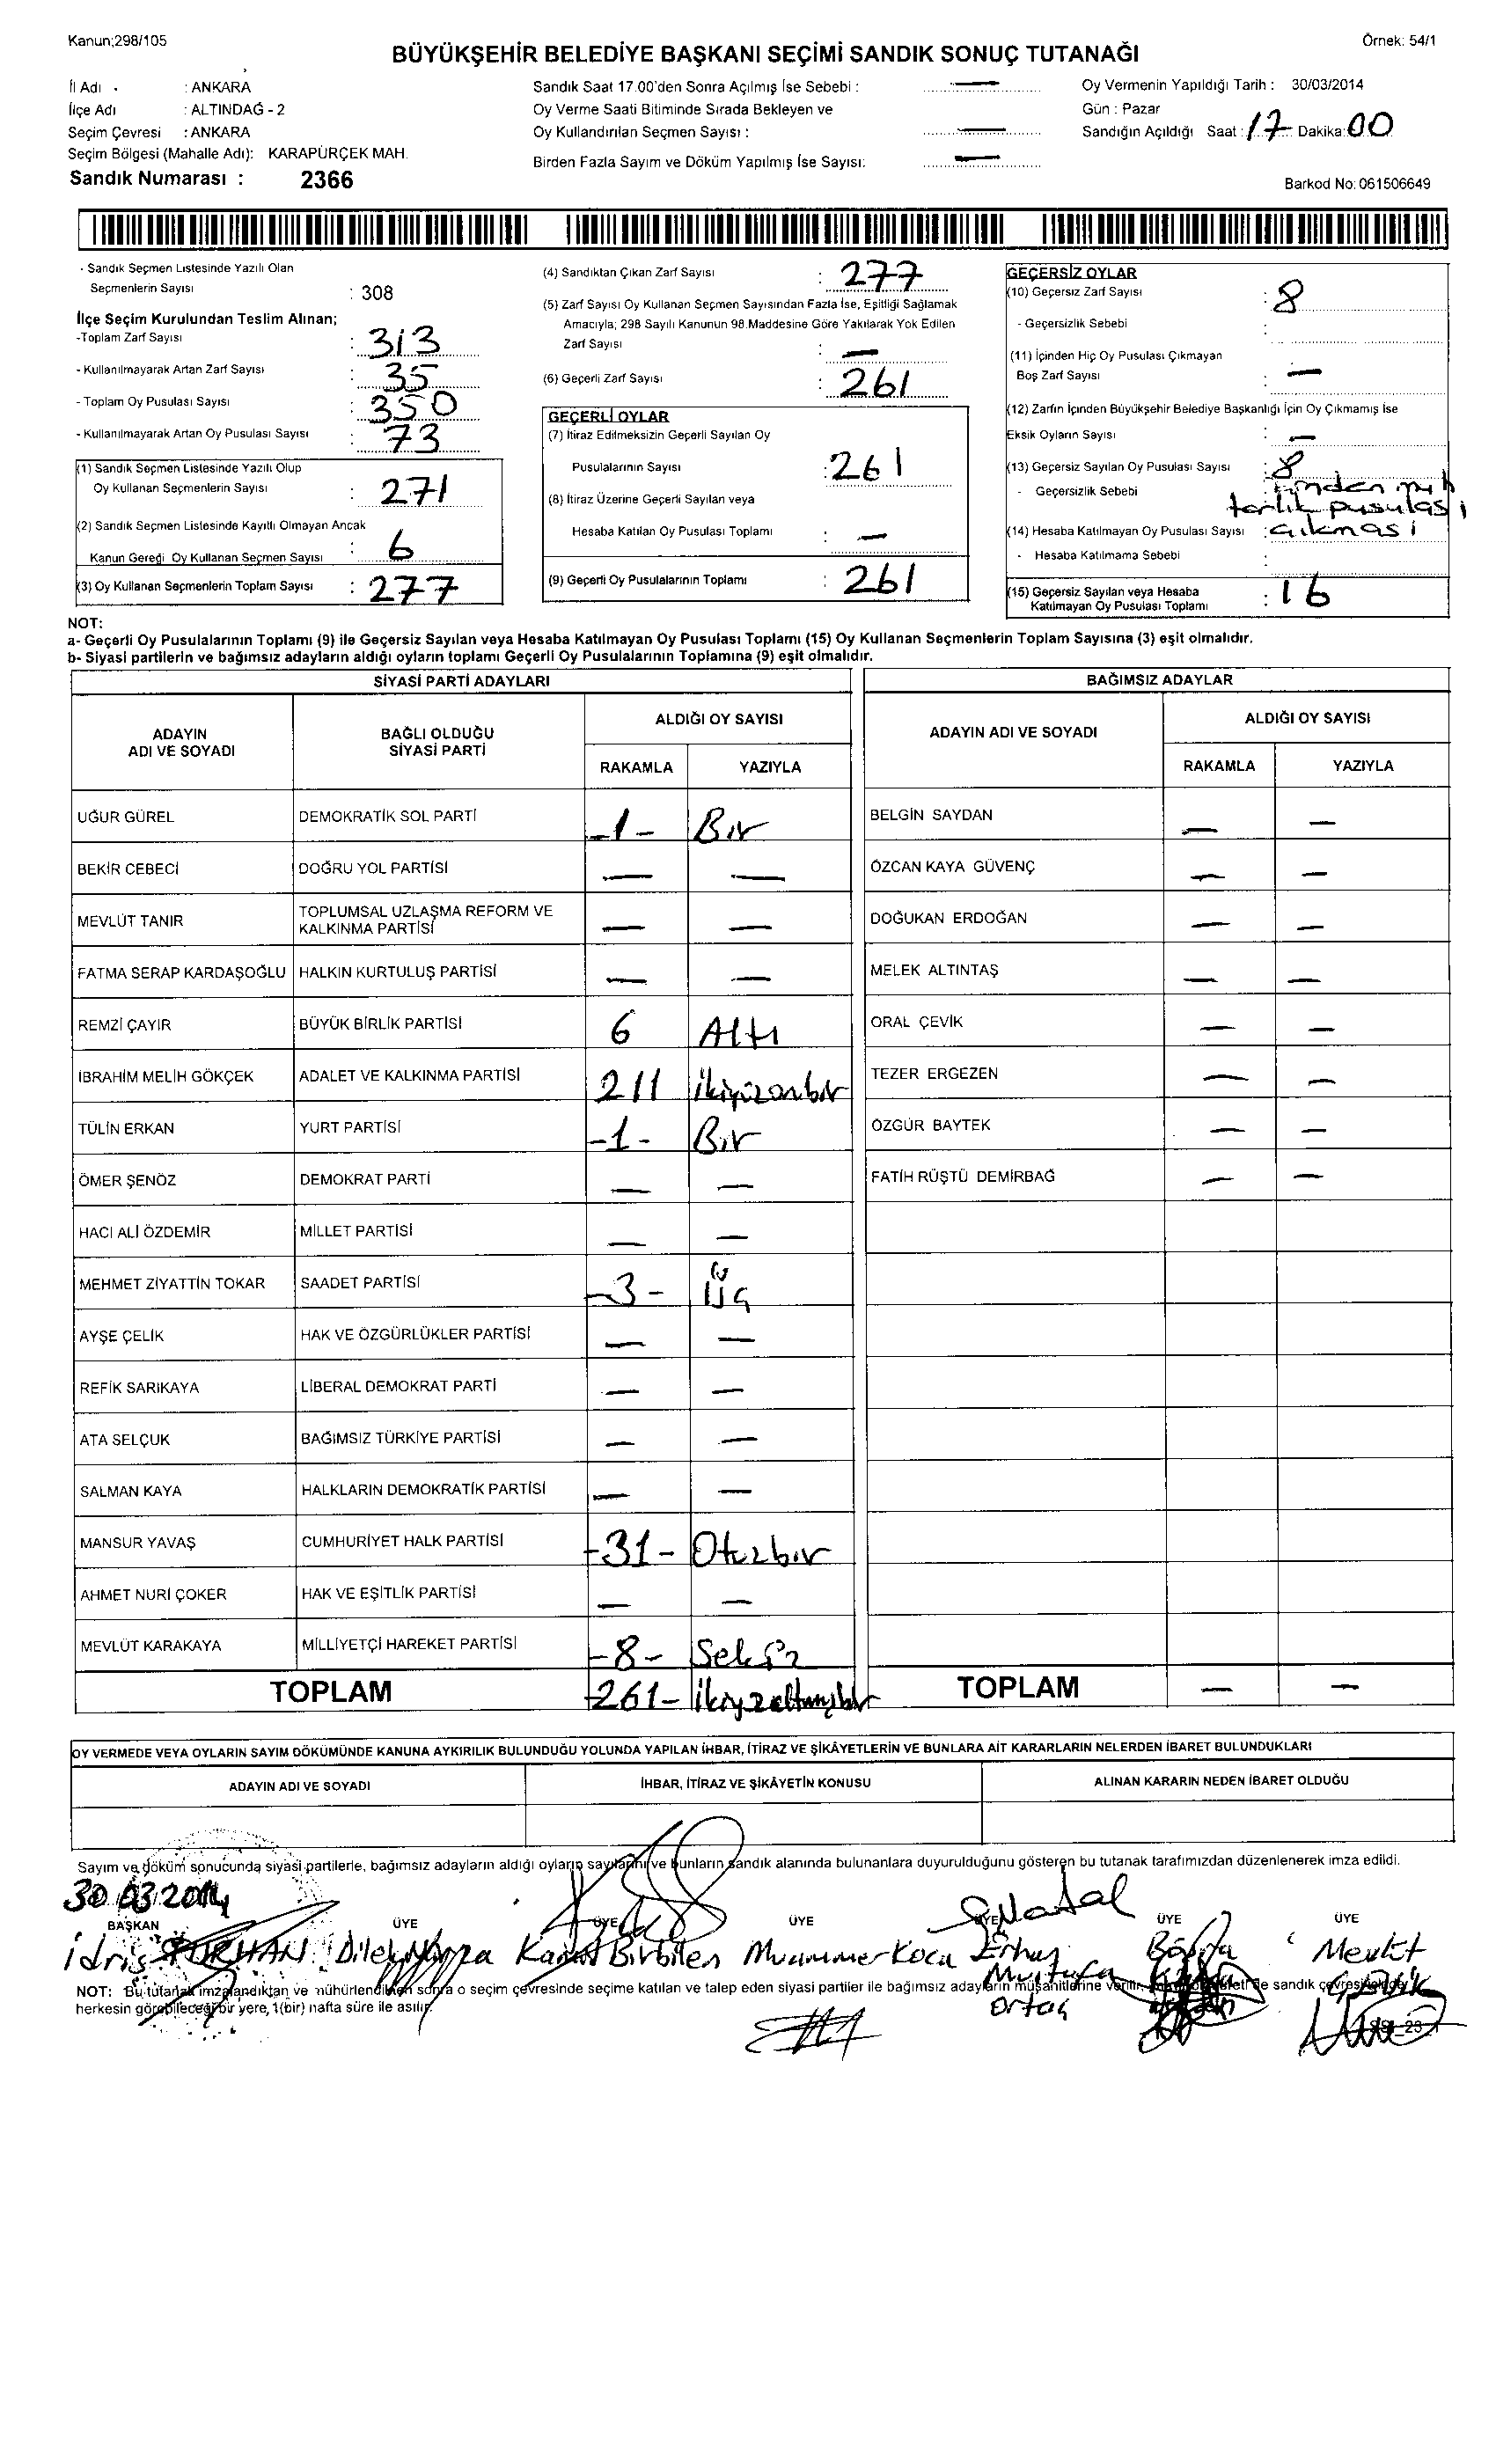 Kanun;298/105
Örnek: 54/1
BÜYÜKŞEHİR BELEDİYE BAŞKANI SEÇİMİ SANDIK SONUÇ TUTANAĞI
İl Adı : ANKARA
İlçe Adı : ALTINDAĞ - 2
Seçim Çevresi : ANKARA
Seçim Bölgesi (Mahalle Adı): KARAPÜRÇEK MAH.
Sandık Numarası : 2366
Sandık Saat 17.00'den Sonra Açılmış İse Sebebi : —
Oy Verme Saati Bitiminde Sırada Bekleyen ve
Oy Kullandırılan Seçmen Sayısı : —
Birden Fazla Sayım ve Döküm Yapılmış İse Sayısı: —
Oy Vermenin Yapıldığı Tarih : 30/03/2014
Gün : Pazar
Sandığın Açıldığı Saat : 17 Dakika: 00
Barkod No: 061506649
- Sandık Seçmen Listesinde Yazılı Olan
Seçmenlerin Sayısı : 308
İlçe Seçim Kurulundan Teslim Alınan;
-Toplam Zarf Sayısı : 313
- Kullanılmayarak Artan Zarf Sayısı : 35
- Toplam Oy Pusulası Sayısı : 350
- Kullanılmayarak Artan Oy Pusulası Sayısı : 73
(1) Sandık Seçmen Listesinde Yazılı Olup
Oy Kullanan Seçmenlerin Sayısı : 271
(2) Sandık Seçmen Listesinde Kayıtlı Olmayan Ancak
Kanun Gereği Oy Kullanan Seçmen Sayısı : 6
(3) Oy Kullanan Seçmenlerin Toplam Sayısı : 277
(4) Sandıktan Çıkan Zarf Sayısı : 277
(5) Zarf Sayısı Oy Kullanan Seçmen Sayısından Fazla İse, Eşitliği Sağlamak
Amacıyla; 298 Sayılı Kanunun 98.Maddesine Göre Yakılarak Yok Edilen
Zarf Sayısı : —
(6) Geçerli Zarf Sayısı : 261
GEÇERLİ OYLAR
(7) İtiraz Edilmeksizin Geçerli Sayılan Oy
Pusulalarının Sayısı : 261
(8) İtiraz Üzerine Geçerli Sayılan veya
Hesaba Katılan Oy Pusulası Toplamı : —
(9) Geçerli Oy Pusulalarının Toplamı : 261
GEÇERSİZ OYLAR
(10) Geçersiz Zarf Sayısı : 8
- Geçersizlik Sebebi :
(11) İçinden Hiç Oy Pusulası Çıkmayan
Boş Zarf Sayısı : —
(12) Zarfın İçinden Büyükşehir Belediye Başkanlığı İçin Oy Çıkmamış İse
Eksik Oyların Sayısı : —
(13) Geçersiz Sayılan Oy Pusulası Sayısı : 8
- Geçersizlik Sebebi : içinden muh
tarlık pusulası
(14) Hesaba Katılmayan Oy Pusulası Sayısı : çıkması
- Hesaba Katılmama Sebebi :
(15) Geçersiz Sayılan veya Hesaba
Katılmayan Oy Pusulası Toplamı : 16
NOT:
a- Geçerli Oy Pusulalarının Toplamı (9) ile Geçersiz Sayılan veya Hesaba Katılmayan Oy Pusulası Toplamı (15) Oy Kullanan Seçmenlerin Toplam Sayısına (3) eşit olmalıdır.
b- Siyasi partilerin ve bağımsız adayların aldığı oyların toplamı Geçerli Oy Pusulalarının Toplamına (9) eşit olmalıdır.
SİYASİ PARTİ ADAYLARI
ADAYIN ADI VE SOYADI BAĞLI OLDUĞU SİYASİ PARTİ ALDIĞI OY SAYISI
RAKAMLA YAZIYLA
UĞUR GÜREL DEMOKRATİK SOL PARTİ -1- Bir
BEKİR CEBECİ DOĞRU YOL PARTİSİ — —
MEVLÜT TANIR TOPLUMSAL UZLAŞMA REFORM VE KALKINMA PARTİSİ — —
FATMA SERAP KARDAŞOĞLU HALKIN KURTULUŞ PARTİSİ — —
REMZİ ÇAYIR BÜYÜK BİRLİK PARTİSİ 6 Altı
İBRAHİM MELİH GÖKÇEK ADALET VE KALKINMA PARTİSİ 211 İkiyüzonbir
TÜLİN ERKAN YURT PARTİSİ -1- Bir
ÖMER ŞENÖZ DEMOKRAT PARTİ — —
HACI ALİ ÖZDEMİR MİLLET PARTİSİ — —
MEHMET ZİYATTİN TOKAR SAADET PARTİSİ -3- Üç
AYŞE ÇELİK HAK VE ÖZGÜRLÜKLER PARTİSİ — —
REFİK SARIKAYA LİBERAL DEMOKRAT PARTİ — —
ATA SELÇUK BAĞIMSIZ TÜRKİYE PARTİSİ — —
SALMAN KAYA HALKLARIN DEMOKRATİK PARTİSİ — —
MANSUR YAVAŞ CUMHURİYET HALK PARTİSİ -31- Otuzbir
AHMET NURİ ÇOKER HAK VE EŞİTLİK PARTİSİ — —
MEVLÜT KARAKAYA MİLLİYETÇİ HAREKET PARTİSİ -8- Sekiz
TOPLAM -261- ikiyüzaltmışbir
BAĞIMSIZ ADAYLAR
ADAYIN ADI VE SOYADI ALDIĞI OY SAYISI
RAKAMLA YAZIYLA
BELGİN SAYDAN — —
ÖZCAN KAYA GÜVENÇ — —
DOĞUKAN ERDOĞAN — —
MELEK ALTINTAŞ — —
ORAL ÇEVİK — —
TEZER ERGEZEN — —
ÖZGÜR BAYTEK — —
FATİH RÜŞTÜ DEMİRBAĞ — —
TOPLAM — —
OY VERMEDE VEYA OYLARIN SAYIM DÖKÜMÜNDE KANUNA AYKIRILIK BULUNDUĞU YOLUNDA YAPILAN İHBAR, İTİRAZ VE ŞİKÂYETLERİN VE BUNLARA AİT KARARLARIN NELERDEN İBARET BULUNDUKLARI
ADAYIN ADI VE SOYADI İHBAR, İTİRAZ VE ŞİKÂYETİN KONUSU ALINAN KARARIN NEDEN İBARET OLDUĞU
Sayım ve döküm sonucunda siyasi partilerle, bağımsız adayların aldığı oyların sayılarını ve bunların sandık alanında bulunanlara duyurulduğunu gösteren bu tutanak tarafımızdan düzenlenerek imza edildi.
30.03.2014
BAŞKAN ÜYE ÜYE ÜYE ÜYE ÜYE ÜYE
idris Dilek Birbilen Muammer Koca Erhan Mevlüt
Mustafa
Ortaç
NOT: Bu tutanak imzalandıktan ve mühürlendikten sonra o seçim çevresinde seçime katılan ve talep eden siyasi partiler ile bağımsız adayların müşahitlerine verilir, sandık çevresindeki
herkesin görebileceği bir yere, 1(bir) hafta süre ile asılır.